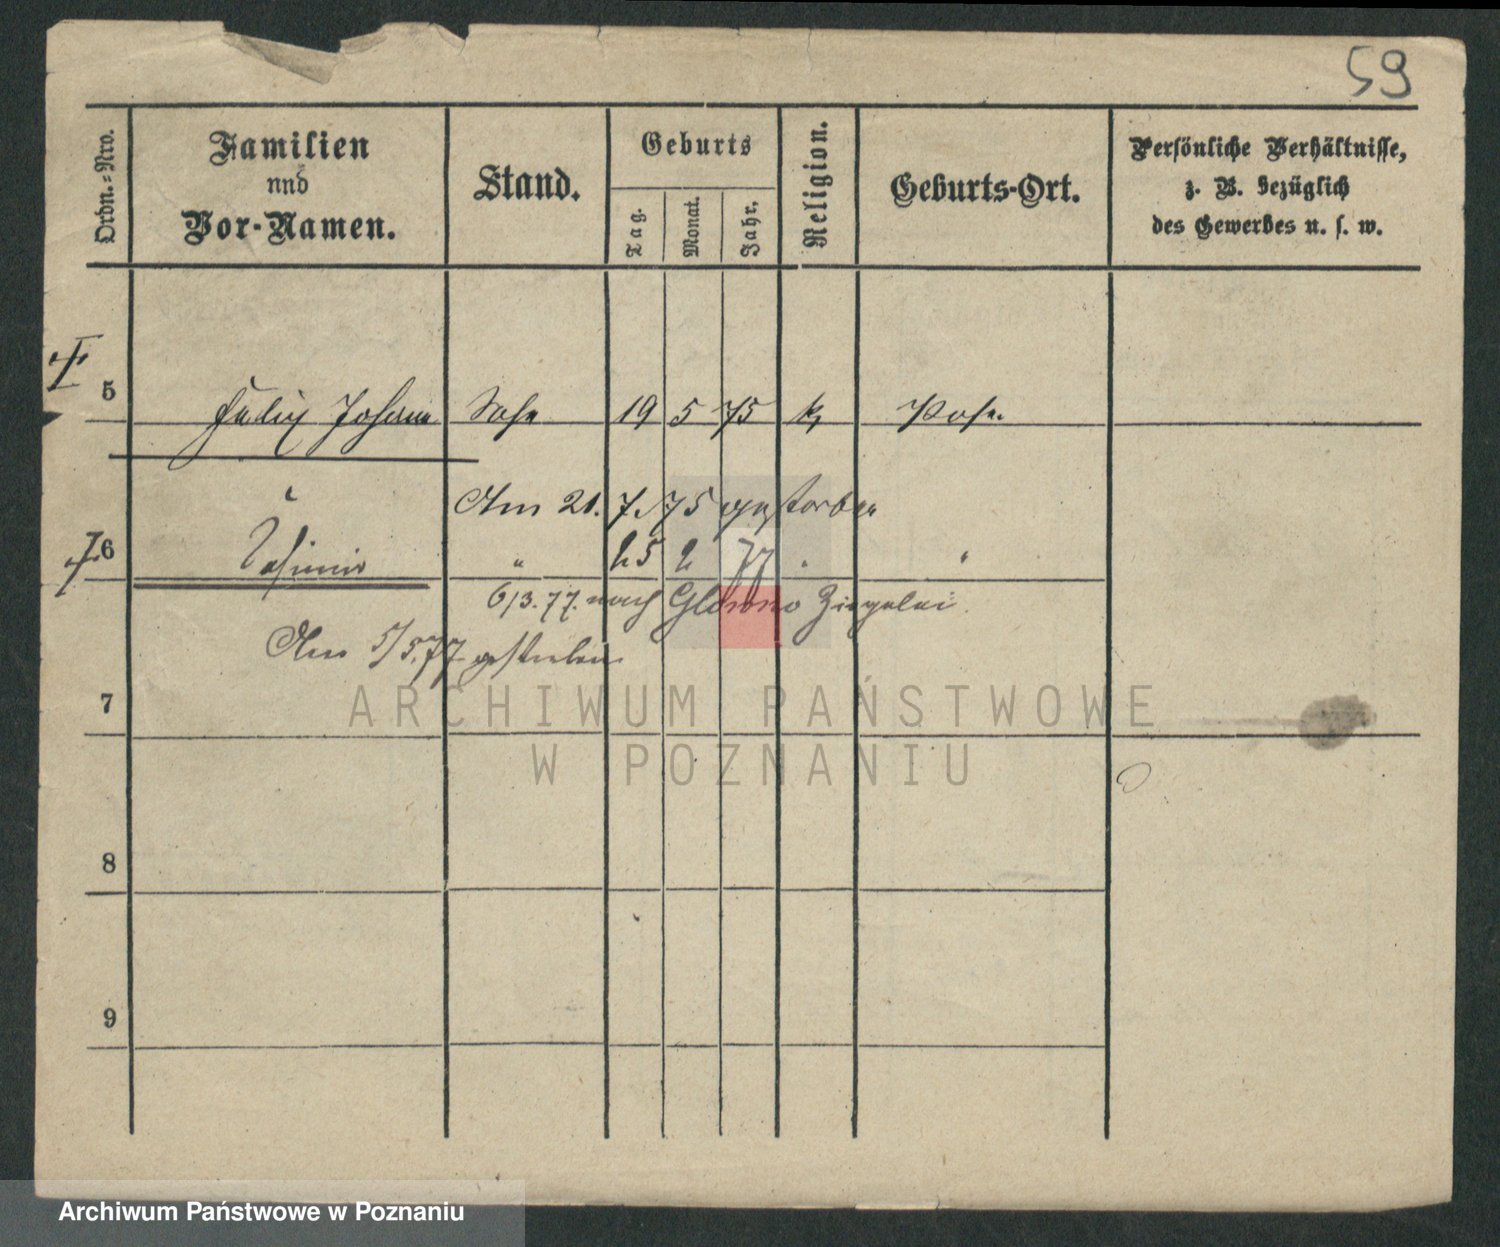 59
Ordn.-Nro.
Familien
und
Vor-Namen.
Stand.
Geburts
Tag.
Monat.
Jahr.
Religion.
Geburts-Ort.
Persönliche Verhältnisse,
z. B. bezüglich
des Gewerbes u. s. w.
5 Felix Johann Sohn 19 5 75 k Posen
Am 21. 7. 75 gestorben
6 Casimir " 25 2 77 " "
6/3. 77. nach Glowno Ziegelei.
Am 5/5. 77 gestorben
7
8
9
ARCHIWUM PAŃSTWOWE
W POZNANIU
Archiwum Państwowe w Poznaniu